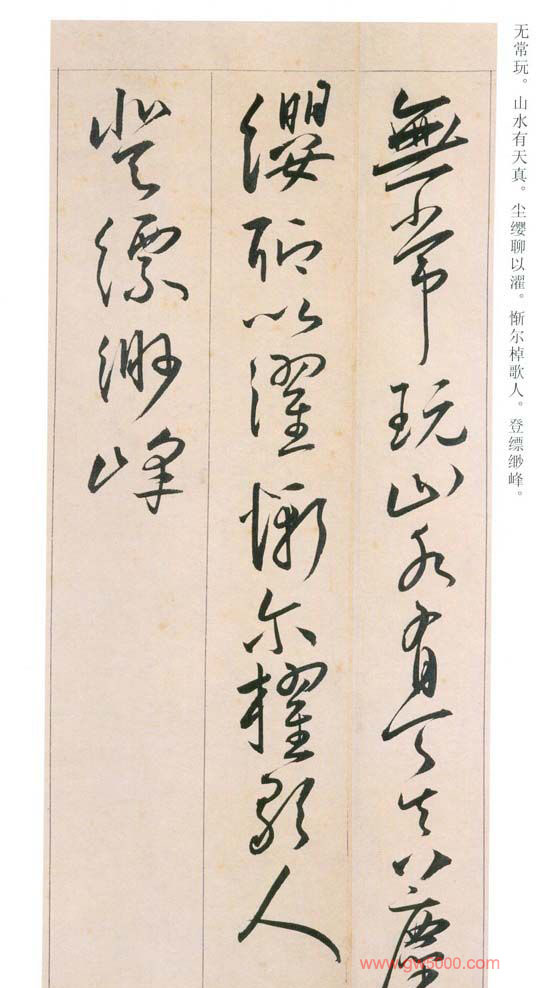 无常玩。山水有天真。尘缨聊以濯。惭尔棹歌人。登缥缈峰。
無常玩山水有天真塵
纓聊以濯慚尔櫂歌人
登縹緲峰
www.gw5000.com